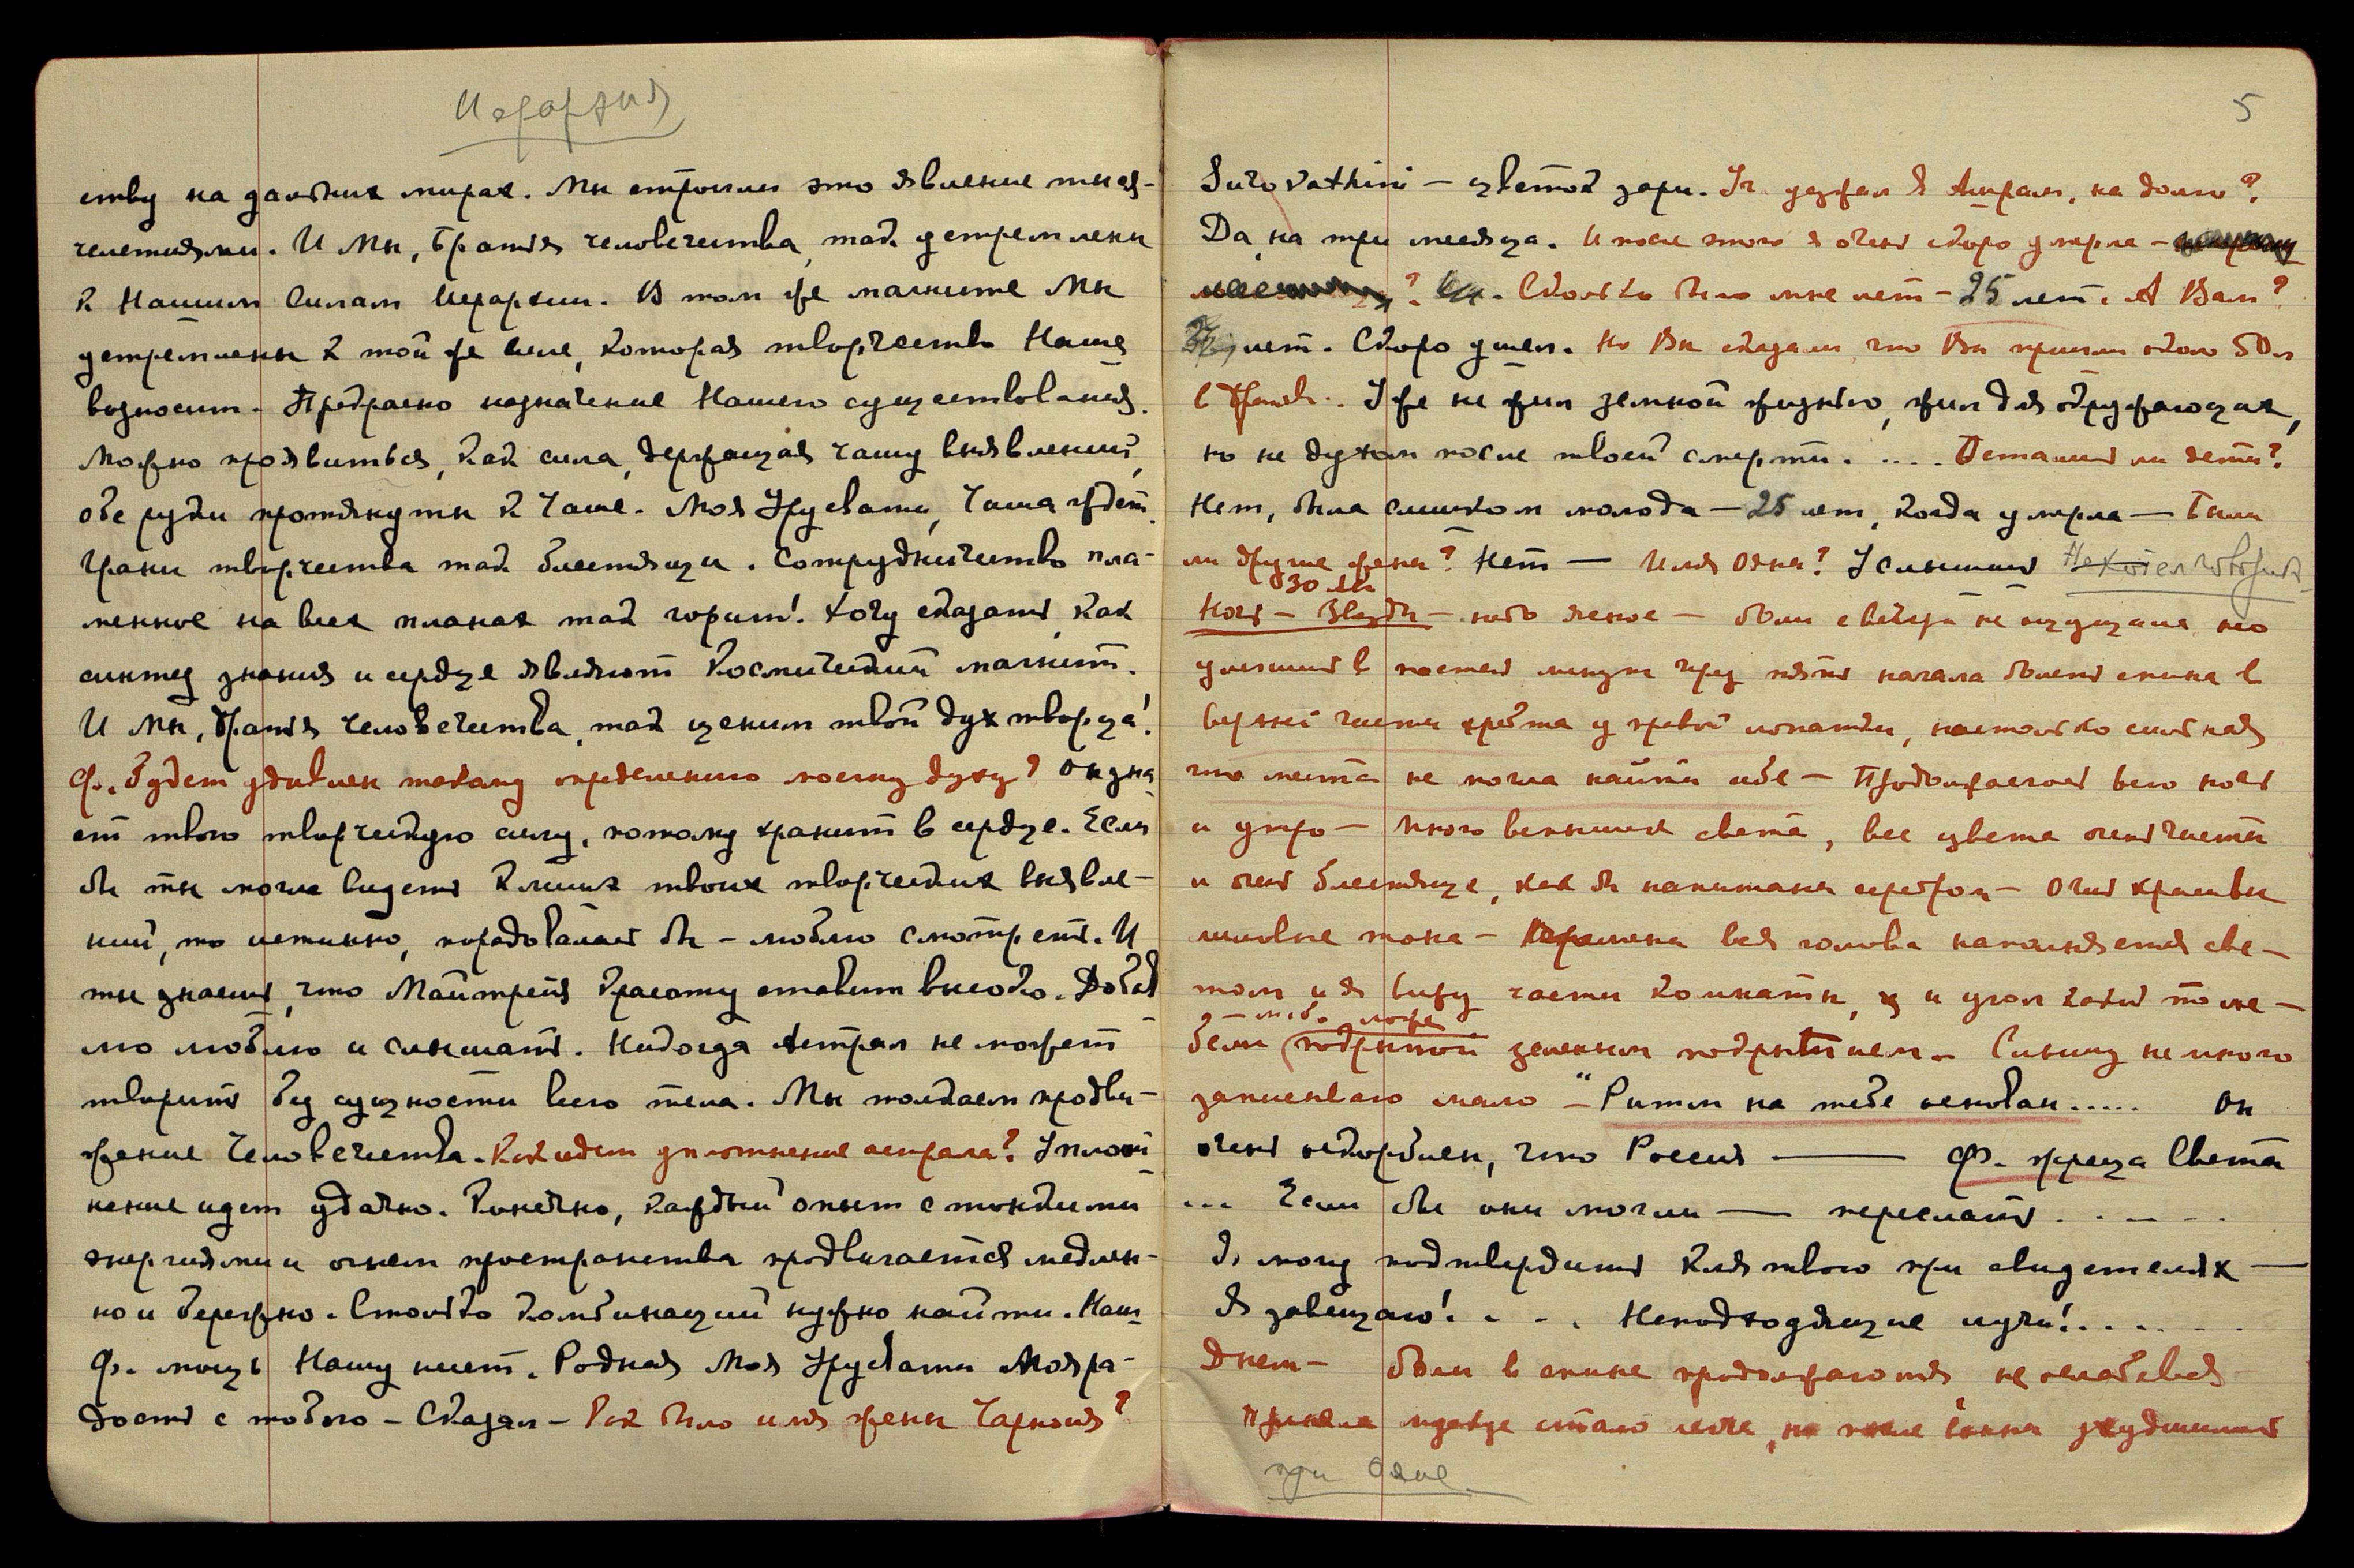 Иерархия
ству на дальних мирах. Мы строили это явление тыся-
челетиями. И Мы, Братья человечества, так устремлены
к Нашим Силам Иерархии. В том же магните Мы
устремлены к той же силе, которая творчество Наше
возносит. Прекрасно назначение Нашего существования.
Можно проявиться, как сила, держащая чашу выявлений,
обе руки протянуты к Чаше. Моя Урусвати, Чаша ждет.
Грани творчества так блестящи. Сотрудничество пла-
менное на всех планах так горит! Хочу сказать, как
синтез знания и сердце являют Космический магнит.
И Мы, Братья Человечества, так ценим твой дух творца!
Ф. будет удивлен такому определению моему духу? Он зна
ет твою творческую силу, потому хранит в сердце. Если
бы ты могла видеть клише твоих творческих выявле-
ний, то истинно, порадовалась бы – люблю смотреть. И
ты знаешь, что Майтрейя красоту ставит высоко. Доба
лю люблю и слышать. Никогда Астрал не может
творить без сущности всего тела. Мы толкаем продви-
жение Человечества. Как идет уплотнение астрала? Уплот
нение идет удачно. Конечно, каждый опыт с тонкими
энергиями и огнем пространства продвигается медлен-
но и бережно. Столько комбинаций нужно найти. Наш
Ф. мощь Нашу шлет. Родная Моя Урусвати Моя ра-
дость с тобою – Сказал – Как было имя жены Чарноия?
5
– цветок зари. уезжал в Аширам, на долго?
Да, на три месяца. И после этого я очень скоро умерла –
? Сколько было мне лет – 25 лет. А Вам?
лет. Скоро ушел. Но Вы сказали, что Вы пришли около 50 л
в Уже не жил земной жизнью, жил для окружающих,
но не духом после твоей смерти. .... Остались ли дети?
Нет, была слишком молода – 25 лет, когда умерла – Были
ли другие жены? Нет – Имя Одна? Услышишь Не хотел говорить
30
Ночь – Звезды – небо ясное – боли с вечера не ощущала, но
улегшись в постель минут через пять начала болеть спина в
верхней части хребта у правой лопатки, настолько сильная
что места не могла найти себе – Продолжалось всю ночь
и утро – много вспышек света, все цвета очень чисты
и очень блестящи, как бы напитаны серебром – Очень красивы
лиловые тона – вся голова наполняется све-
том и я вижу части комнаты, и угол
ложе
покрытой зеленым покрытием. Слышу не много
записываю мало – "Ритм на тебе основан..... Он
очень оскорблен, что Россия ——— Ф. жреца Света
... Если бы они могли —— переслать . . – – .
Я могу подтвердить клятвою при свидетелях —
Я завещаю! . - . . Неподходящие лучи! . . . . . .
Днем – боли в спине продолжаются, не ослабевая
стало легче, но после ухудшились
при Ояне